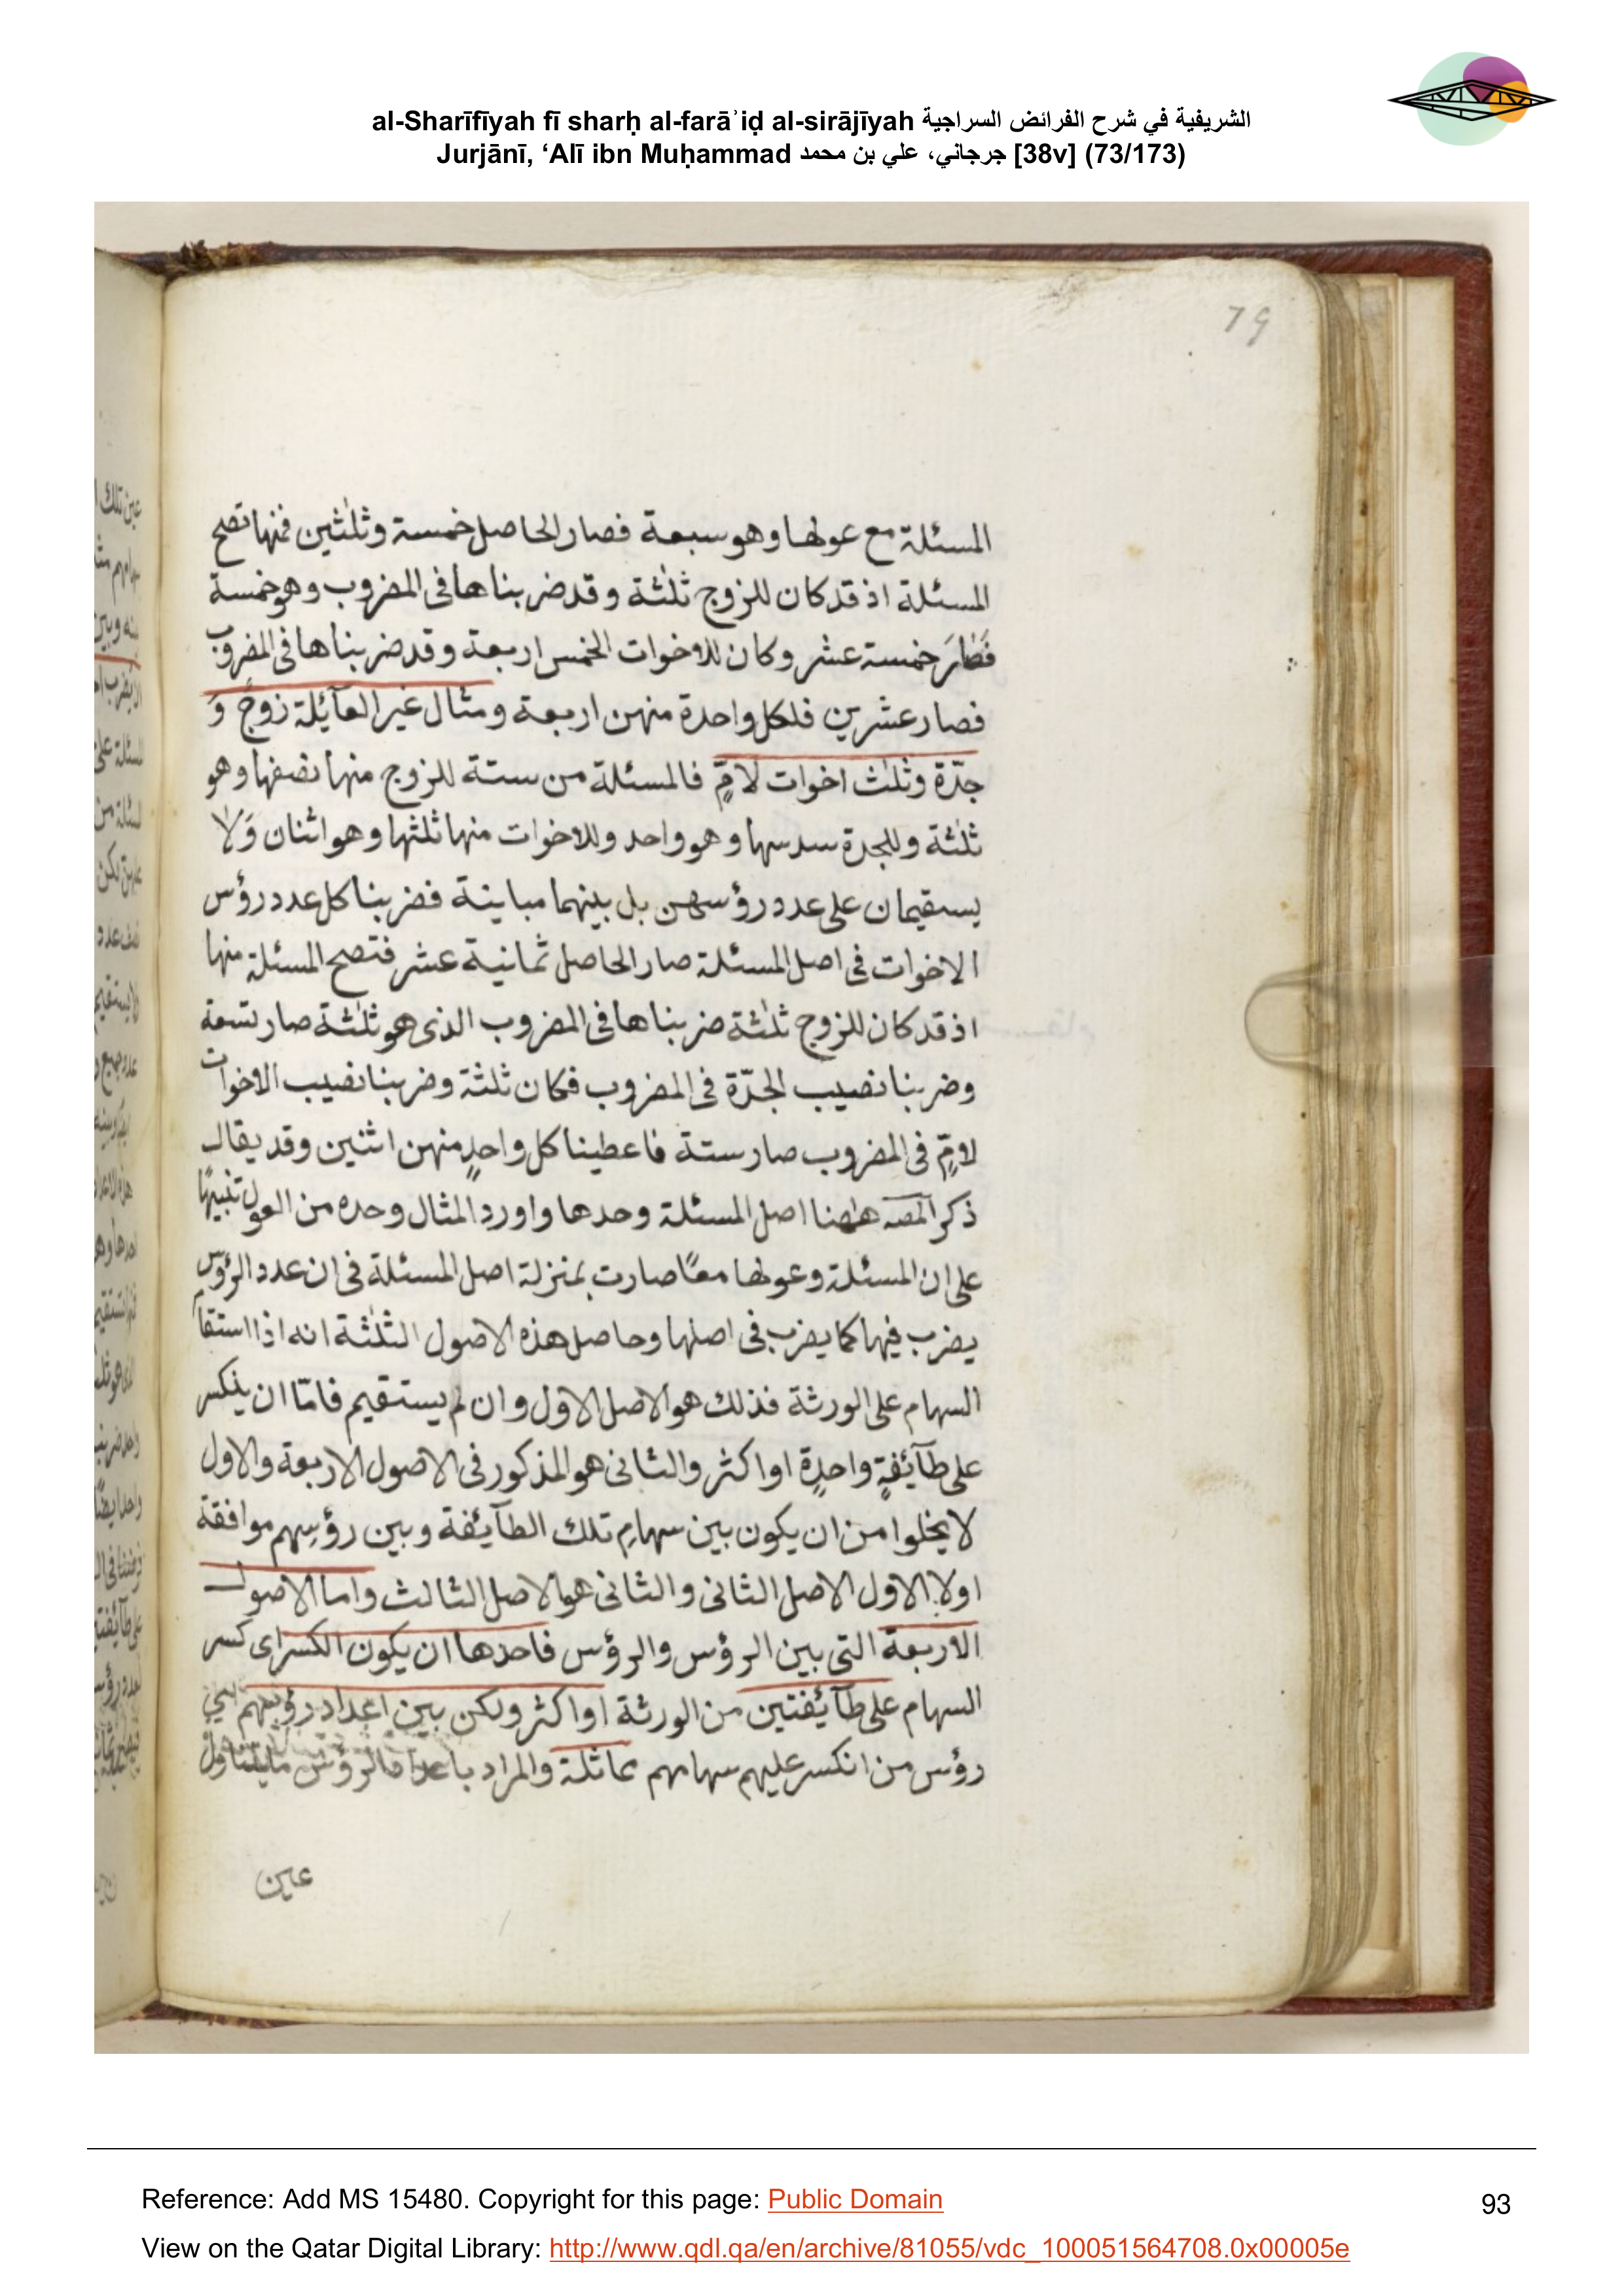 al-Sharīfīyah fī sharḥ al-farāʾiḍ al-sirājīyah الشريفية في شرح الفرائض السراجية
Jurjānī, ‘Alī ibn Muḥammad جرجاني، علي بن محمد [38v] (73/173)
79
المسئلة مع عولها وهو سبعة فصار الحاصل خمسة وثلثين فمنها تصح
المسئلة اذ قد كان للزوج ثلثة وقد ضربناها فى المضروب وهو خمسة
فصار خمسة عشر وكان للاخوات الخمس اربعة وقد ضربناها فى المضروب
فصار عشرين فلكل واحدة منهن اربعة ومثال غير العآئلة زوج وَ
جدّة وثلث اخوات لامٍّ فالمسئلة من ستة للزوج منها نصفها وهو
ثلثة وللجدة سدسها وهو واحد وللاخوات منها ثلثها وهو اثنان وَلا
يستقيمان على عدد رؤسهن بل بينهما مباينة فضربنا كل عدد رؤس
الاخوات فى اصل المسئلة صار الحاصل ثمانية عشر فتصح المسئلة منها
اذ قد كان للزوج ثلثة ضربناها فى المضروب الذى هو ثلثة صار تسعة
وضربنا نصيب الجدّة فى المضروب فكان ثلثة وضربنا نصيب الاخوات
لامٍّ فى المضروب صار ستة فاعطينا كل واحدٍ منهن اثنين وقد يقال
ذكر المصه ههنا اصل المسئلة وحدها واورد المثال وحده من العول تنبيهًا
على ان المسئلة وعولها معًا صارت بمنزلة اصل المسئلة فى ان عدد الرؤس
يضرب فيها كما يضرب فى اصلها وحاصل هذه الاصول الثلثة انه اذا استقام
السهام على الورثة فذلك هو الاصل الاول وان لم يستقيم فامّا ان ينكسر
على طآئفةٍ واحدةٍ او اكثر والثانى هو المذكور فى الاصول الاربعة والاول
لا يخلوا من ان يكون بين سهامِ تلك الطآئفة وبين رؤسِهم موافقة
اولا الاول الاصل الثانى والثانى هو الاصل الثالث واما الاصول
الاربعة التى بين الرؤس والرؤس فاحدها ان يكون الكسر اى كسر
السهام على طآئفتين من الورثة او اكثر ولكن بين اعداد رؤسهم
رؤس من انكسر عليهم سهامهم مماثلة والمراد الرؤس ما يتناول
عين
Reference: Add MS 15480. Copyright for this page: Public Domain
93
View on the Qatar Digital Library: http://www.qdl.qa/en/archive/81055/vdc_100051564708.0x00005e